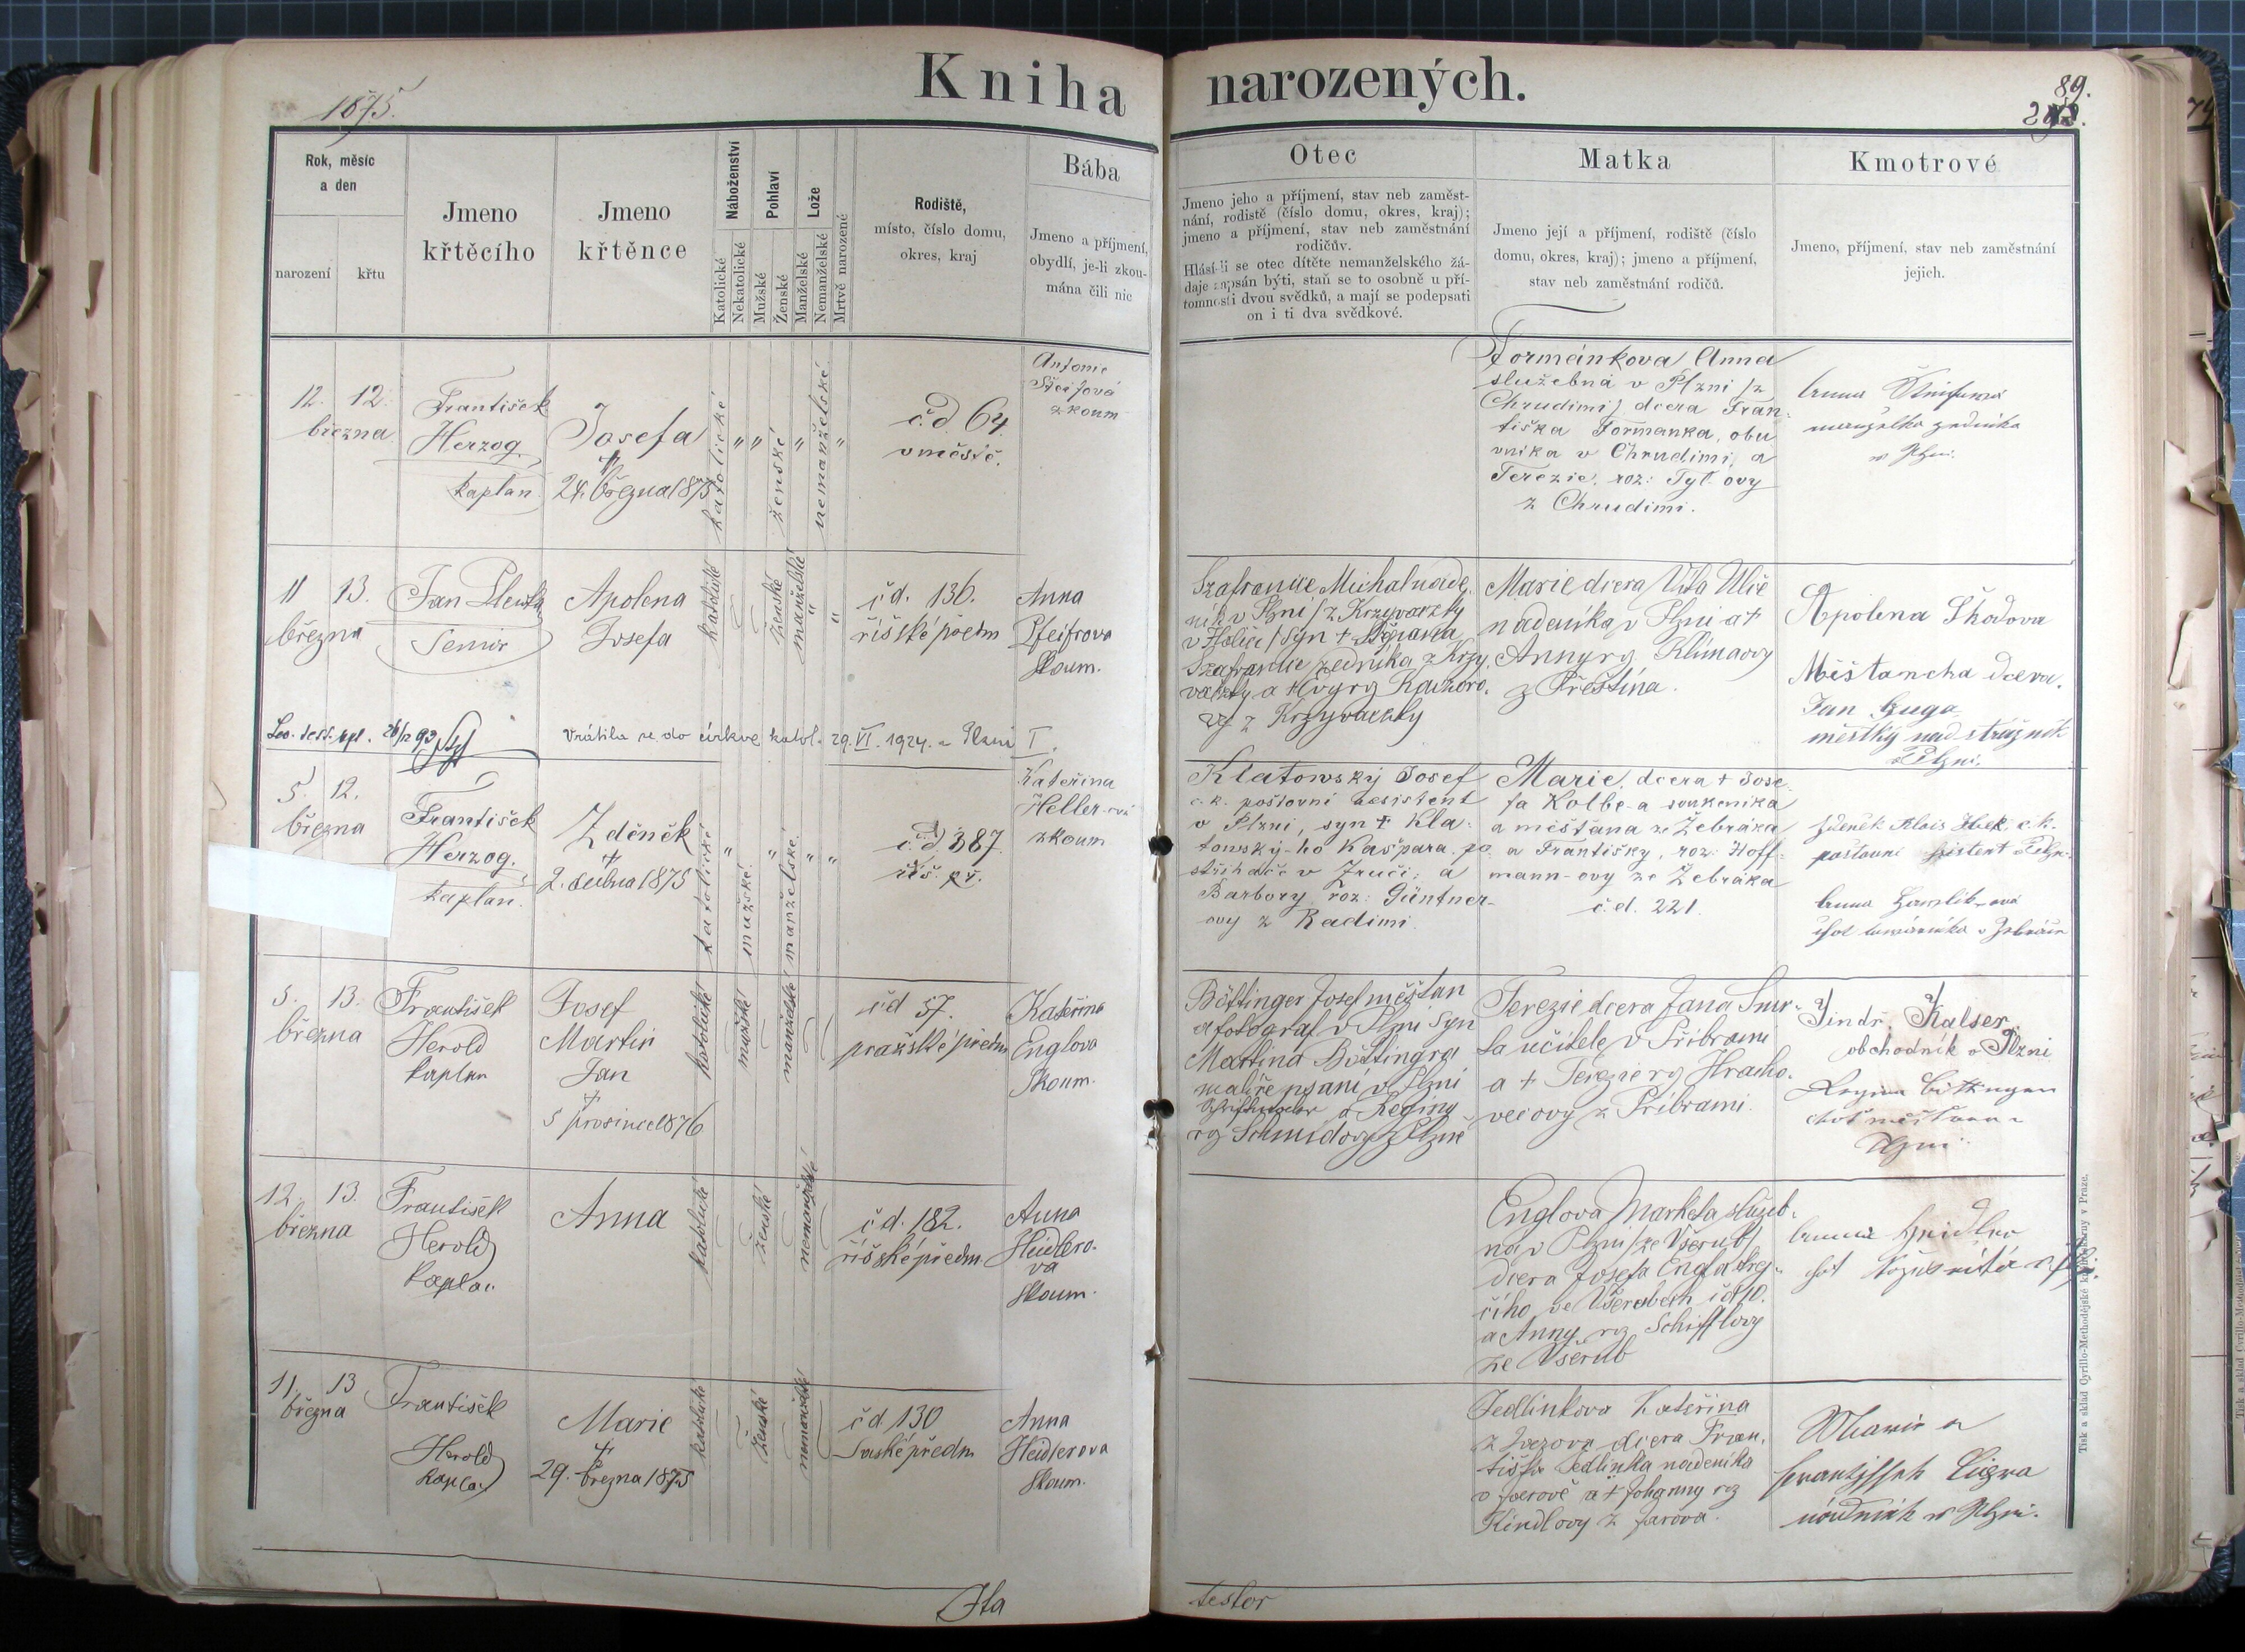 1875.
Kniha narozených.
89.
Rok, měsíc
a den
narození
křtu
Jmeno
křtěcího
Jmeno
křtěnce
Náboženství
Katolické
Nekatolické
Pohlaví
Mužské
Ženské
Lože
Manželské
Nemanželské
Mrtvě narozené
Rodiště,
místo, číslo domu,
okres, kraj
Bába
Jmeno a příjmení,
obydlí, je-li zkou-
mána čili nic
Otec
Jmeno jeho a příjmení, stav neb zaměst-
nání, rodiště (číslo domu, okres, kraj);
jmeno a příjmení, stav neb zaměstnání
rodičův.
Hlásí-li se otec dítěte nemanželského žá-
daje zapsán býti, staň se to osobně u pří-
tomnosti dvou svědků, a mají se podepsati
on i ti dva svědkové.
Matka
Jmeno její a příjmení, rodiště (číslo
domu, okres, kraj); jmeno a příjmení,
stav neb zaměstnání rodičů.
Kmotrové
Jmeno, příjmení, stav neb zaměstnání
jejich.
12. 12.
března
František
Herzog.
kaplan
Josefa
†
24. března 1875
katolické
" "
ženské
"
nemanželské
"
č.d. 64.
v městě.
Antonie
zkoum
Formánkova Anna
služebná v Plzni /z
Chrudimi/ dcera Fran-
tiška Formanka, obu
vníka v Chrudimi, a
Terezie, roz: Tyl-ovy
z Chrudimi.
manželka
w Plzni.
11 13.
března
Jan
Senior
Apolena
Josefa
katolické
ženské
manželské
"
"
čd. 136.
říšské předm
Anna
Pfeifrova
Skoum.
Michal nade
ník v Plzni /z
v Haliči/ syn +
zedníka z Krzy
Marie dcera Víta
nádeníka v Plzni a †
Anny rz Klimaovy
z Přeštína.
Apolena Škodova
Měšťancka dcera.
Jan
městký nad strážník
v Plzni.
Vrátila se do církve katol. 29. VI. 1924. v Plzni I.
5. 12.
března
František
Herzog.
kaplan.
Zděněk
†
2. dubna 1875
katolické
"
mužské
"
manželské
" "
č.d. 387
říš. př.
Kateřina
Heller-ová
zkoum
Klatowský Josef
c.k. poštovní assistent
v Plzni, syn † Kla-
towský-ho Kašpara, po
střihače v Zruči; a
Barbory roz: Güntner-
ovy z Radimi.
Marie, dcera † Jose
fa Kolbe-a soukeníka
a měšťana ze Žebráka
a Františky, roz: Hoff-
mann-ovy ze Žebráka
č.d. 221.
Zdeněk Alois
poštovní assistent v Plzni.
5. 13.
března
František
Herold
kaplan
Josef
Martin
Jan
†
5 prosince 1876
katolické
mužské
manželské
čd 57.
pražské předm
Kateřina
Englova
Skoum.
Böttinger Josef měšťan
a fotograf v Plzni syn
Martina Böttingra
malíře psaní v Plzni
a Reginy
rz Schmidovy z Plzně
Terezie dcera Jana Smr-
ta učitele v Příbrami
a † Terezie rz Hracho-
vecovy z Příbrami.
Jindř. Kalser
obchodník v Plzni
Regina
choť měšťana v
Plzni
12. 13.
března
František
Herold
kaplan
Anna
katolické
ženské
nemanželské
čd. 182.
říšské předm.
Anna
Heidlero-
va
Skoum.
Englova Marketa služeb-
ná v Plzni /ze Všerub/
dcera Josefa Engla krej-
čího ve Všerubech čd 10.
a Anny rz Schifflovy
ze Všerub
11. 13
března
František
Herold
kaplan
Marie
†
29. března 1875
katolické
ženské
nemanželské
čd 130
Saské předm
Anna
Heidlerova
Skoum.
Jedlinkova Kateřina
dcera Fran-
tiška Jedlinka nádeníka
a † Johanny rz
Kindlovy z Jarova.
Marie a
w Plzni.
Tisk a sklad Cyrillo-Methodějské knihtiskárny v Praze.